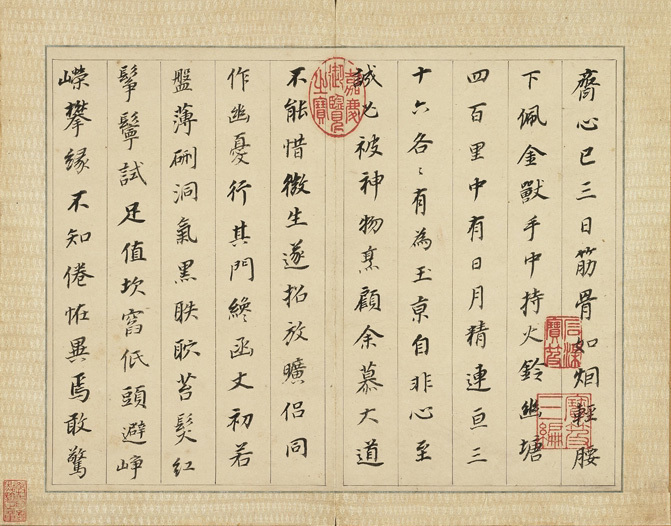 齋心已三日筋骨如烟輕腰
下佩金獸手中持火鈴幽塘
四百里中有日月精連亘三
十六各〻有為玉京自非心至
誠必被神物烹顧余慕大道
不能惜微生遂招放曠侣同
作幽憂行其門纔函丈初若
盤薄硎洞氣黑眣苔髮紅
鬇鬡試足值坎窞低頭避崢
嶸攀緣不知倦怪異焉敢驚
嘉慶御覽之寶
石渠寶笈
寶笈三編